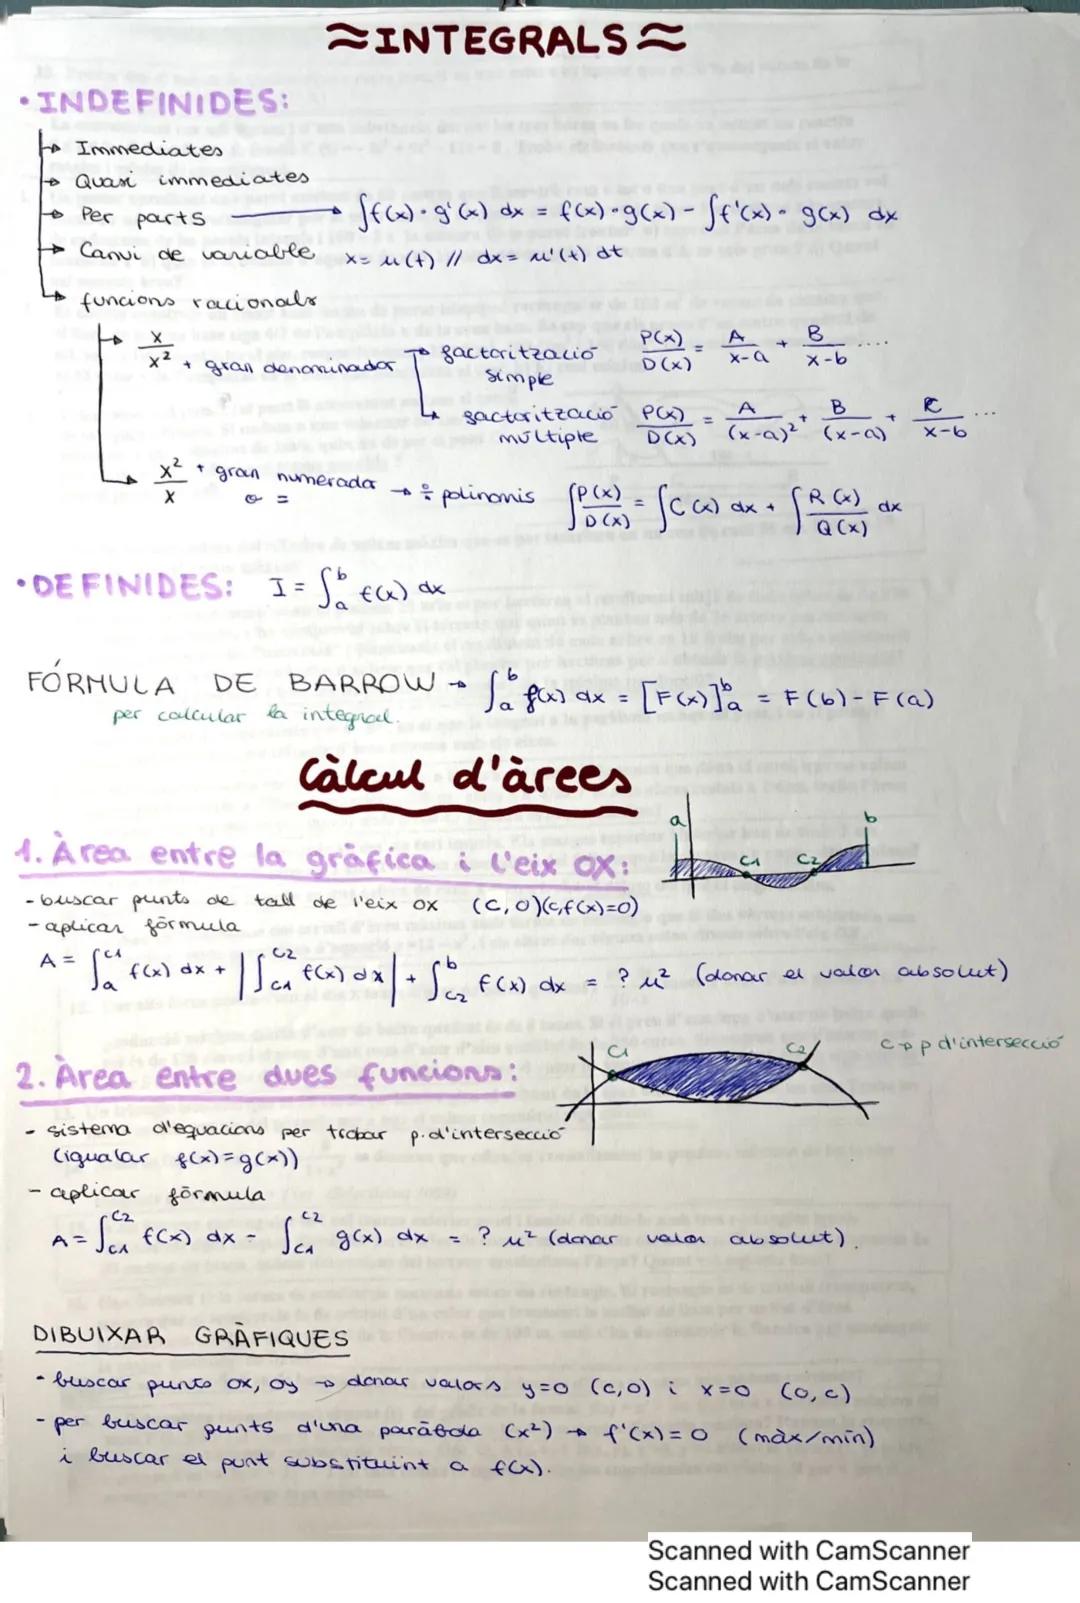 ≈INTEGRALS≈
• INDEFINIDES:
→ Immediates
→ Quasi immediates
→ Per parts → ∫f(x)·g'(x) dx = f(x)·g(x) - ∫f'(x)·g(x) dx
→ Canvi de variable x = u(t) // dx = u'(t) dt
→ funcions racionals
→ x/x² + gran denominador → factorització simple P(x)/D(x) = A/(x-a) + B/(x-b) ....
→ factorització múltiple P(x)/D(x) = A/(x-a)² + B/(x-a) + C/(x-b) ...
→ x²/x + gran numerador o = → ÷ polinomis ∫P(x)/D(x) = ∫C(x) dx + ∫R(x)/Q(x) dx
• DEFINIDES: I = ∫ₐᵇ f(x) dx
FÓRMULA DE BARROW → ∫ₐᵇ f(x) dx = [F(x)]ₐᵇ = F(b) - F(a)
per calcular la integral.
Càlcul d'àrees
a b
C1 C2
1. Àrea entre la gràfica i l'eix OX:
- buscar punts de tall de l'eix OX (C,0)(C,f(x)=0)
- aplicar fórmula
A = ∫ₐ^C1 f(x) dx + |∫_C1^C2 f(x) dx| + ∫_C2^b f(x) dx = ? u² (donar el valor absolut)
C1 C2 C → p d'intersecció
2. Àrea entre dues funcions:
- sistema d'equacions per trobar p. d'intersecció
(igualar f(x)=g(x))
- aplicar fórmula
A = ∫_C1^C2 f(x) dx - ∫_C1^C2 g(x) dx = ? u² (donar valor absolut).
DIBUIXAR GRÀFIQUES
- buscar punts ox, oy → donar valors y=0 (c,0) i x=0 (0,c)
- per buscar punts d'una paràbola (x²) → f'(x)=0 (màx/mín)
i buscar el punt substituint a f(x).
Scanned with CamScanner
Scanned with CamScanner